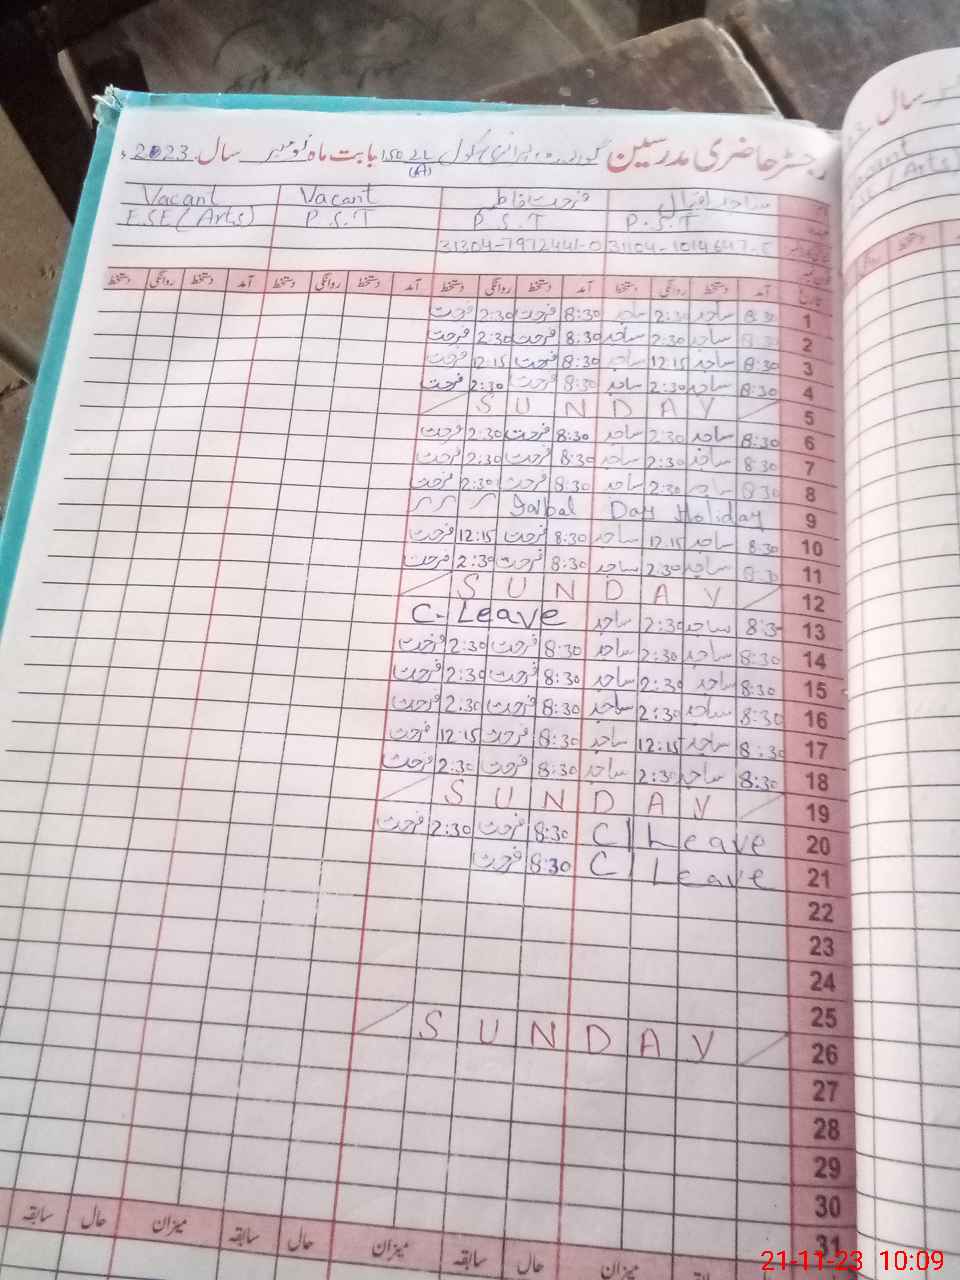 رجسٹر حاضری مدرسین گورنمنٹ پرائمری سکول 150 21 (A) بابت ماہ نومبر سال 2023ء
ساجد اقبال فرحت فاطمہ Vacant Vacant
P.S.T P.S.T P.S.T E.SE (Arts)
31304-7972441-0
تاریخ آمد دستخط روانگی دستخط آمد دستخط روانگی دستخط آمد دستخط روانگی دستخط آمد دستخط روانگی دستخط
1 8:30 ساجد 2:30 ساجد 8:30 فرحت 2:30 فرحت
2 8:30 ساجد 2:30 ساجد 8:30 فرحت 2:30 فرحت
3 8:30 ساجد 12:15 ساجد 8:30 فرحت 12:15 فرحت
4 8:30 ساجد 2:30 ساجد 8:30 فرحت 2:30 فرحت
5 SUNDAY
6 8:30 ساجد 2:30 ساجد 8:30 فرحت 2:30 فرحت
7 8:30 ساجد 2:30 ساجد 8:30 فرحت 2:30 فرحت
8 8:30 ساجد 2:30 ساجد 8:30 فرحت 2:30 فرحت
9 Day Holiday
10 8:30 ساجد 12:15 ساجد 8:30 فرحت 12:15 فرحت
11 8:30 ساجد 2:30 ساجد 8:30 فرحت 2:30 فرحت
12 SUNDAY
13 8:3 ساجد 2:30 ساجد C-Leave
14 8:30 ساجد 2:30 ساجد 8:30 فرحت 2:30 فرحت
15 8:30 ساجد 2:30 ساجد 8:30 فرحت 2:30 فرحت
16 8:30 ساجد 2:30 ساجد 8:30 فرحت 2:30 فرحت
17 8:30 ساجد 12:15 ساجد 8:30 فرحت 12:15 فرحت
18 8:30 ساجد 2:30 ساجد 8:30 فرحت 2:30 فرحت
19 SUNDAY
20 C/Leave 8:30 فرحت 2:30 فرحت
21 C/Leave 8:30 فرحت
22
23
24
25
26 SUNDAY
27
28
29
30
31
میزان حال سابقہ میزان حال سابقہ میزان حال سابقہ
21-11-23 10:09